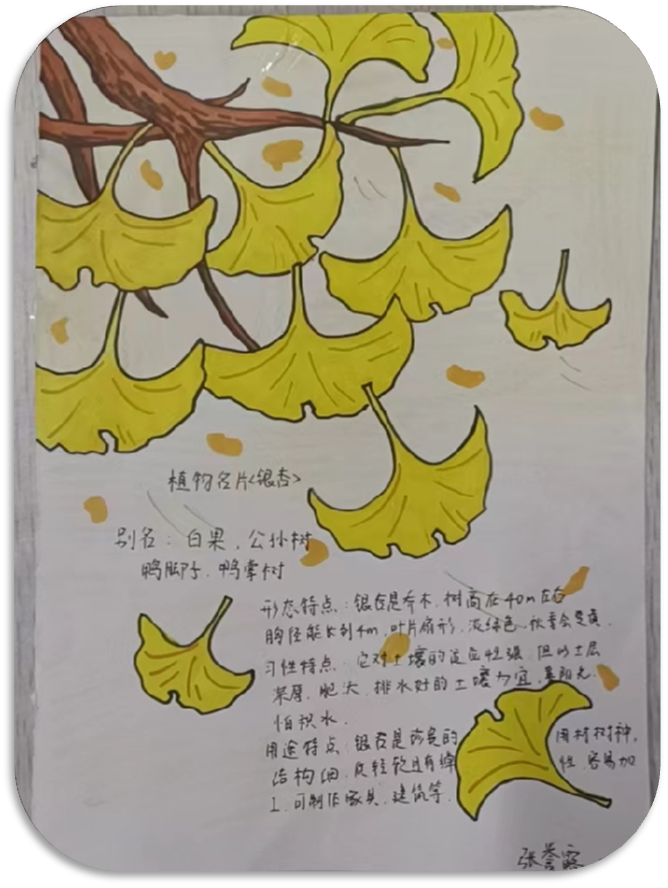 植物名片<银杏>
别名：白果，公孙树
鸭脚子，鸭掌树
形态特点：银杏是乔木，树高在40m左右
胸径能长到4m，叶片扇形，淡绿色，秋季会是黄
习性特点：它对土壤的适应性强，但以土层
深厚，肥沃，排水好的土壤为宜，喜阳光，
怕积水．
用途特点：银杏是珍贵的用材树种，
结构细，质轻软且有弹性，容易加
工，可制作家具，建筑等．
张誉露